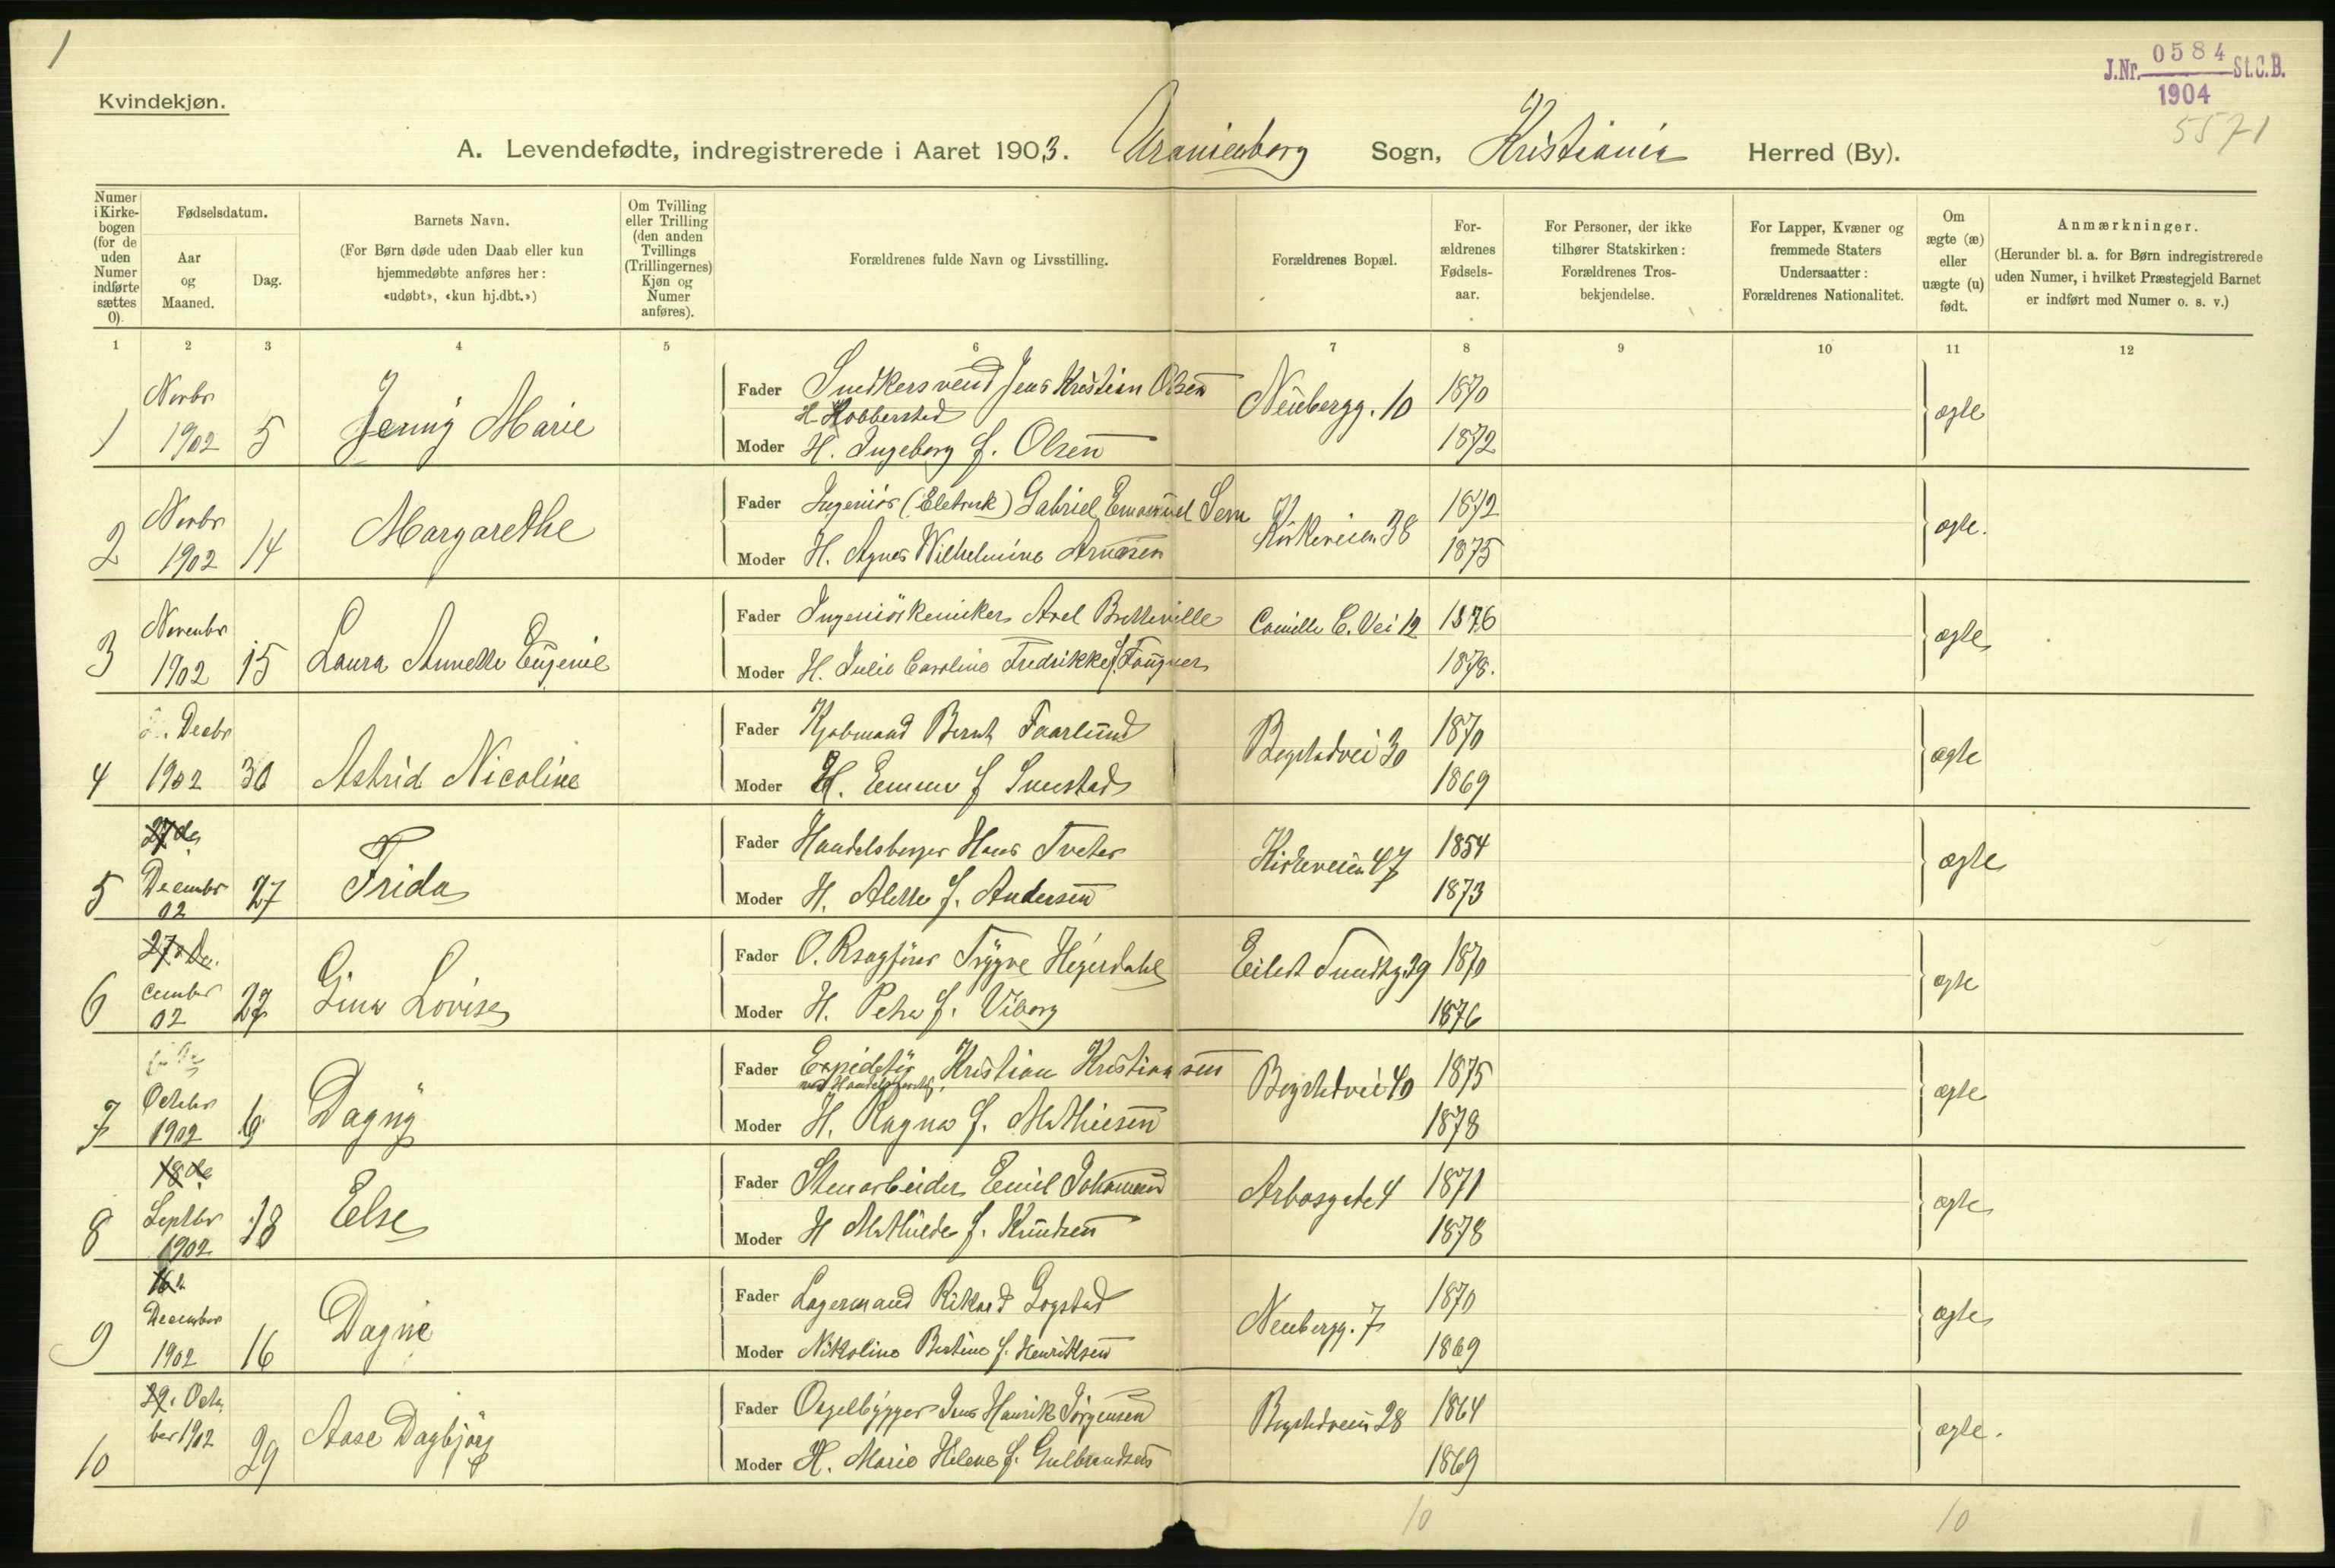 1
J.Nr. 0584 St.C.B.
1904
5571
Kvindekjøn.
A. Levendefødte, indregistrerede i Aaret 1903. Uranienborg Sogn, Kristiania Herred (By).
Numer i Kirke-bogen (for de uden Numer indførte sættes 0).
Fødselsdatum.
Aar og Maaned.
Dag.
Barnets Navn.
(For Børn døde uden Daab eller kun hjemmedøbte anføres her: «udøbt», «kun hj.dbt.»)
Om Tvilling eller Trilling (den anden Tvillings (Trillingernes) Kjøn og Numer anføres).
Forældrenes fulde Navn og Livsstilling.
Forældrenes Bopæl.
For-ældrenes Fødsels-aar.
For Personer, der ikke tilhører Statskirken: Forældrenes Tros-bekjendelse.
For Lapper, Kvæner og fremmede Staters Undersaatter: Forældrenes Nationalitet.
Om ægte (æ) eller uægte (u) født.
Anmærkninger.
(Herunder bl. a. for Børn indregistrerede uden Numer, i hvilket Præstegjeld Barnet er indført med Numer o. s. v.)
1 2 3 4 5 6 7 8 9 10 11 12
1 Novbr 1902 5 Jenny Marie
Fader Snedkersvend Jens Kristian Olsen Neubergg. 10 1870 ægte
H Hobberstad
Moder H. Ingeborg f. Olsen 1872
2 Novbr 1902 14 Margarethe
Fader Ingeniör (Eletrisk) Gabriel Emanuel Sem Kirkeveien 38 1872 ægte.
Moder H. Agnes Wilhelmine Arnesen 1875
3 Novembr 1902 15 Laura Annette Eugenie
Fader Ingeniörkemiker Axel Bretteville Camilla C. Vei 12 1876 ægte
Moder H. Julie Caroline Fredrikke f. Fougner 1878.
4 Decbr 1902 30 Astrid Nicoline
Fader Kjøbmand Bernt Faarlund Bogstadvei 30 1870 ægte
Moder H. Emma f 1869
5 27de Decembr 02 27 Frida
Fader Handelsborger Hans Tveter Kirkeveien 47 1854 ægte
Moder H. Alette f. Andersen 1873
6 27de De.cember 02 27 Gina Lovise
Fader O. Rsagfører Trygve Heyerdahl Eilert Sundtsg. 39 1870 ægte
Moder H. Petra f. Viborg 1876
7 October 1902 6 Dagny
Fader Expeditör Kristian Kristiansen Bogstadvei 40 1875 ægte
Moder H. Ragna f. Mathiesen 1878
8 18de Septbr 1902 18 Else
Fader Stenarbeider Emil Johansen Arbosgate 4 1871 ægte
Moder H Mathilde f. Knudsen 1878
9 16 December 1902 16 Dagne
Fader Lagermand Rikard Gogstad Neubergg. 7 1870 ægte
Moder Nikoline Bertine f. Henriksen 1869
10 29. October 1902 29 Aase Dagbjörg
Fader Orgelbygger Jens Henrik Jörgensen Bogstadveien 28 1864 ægte.
Moder H. Marie Helene f. Gulbrandsen 1869
10 10